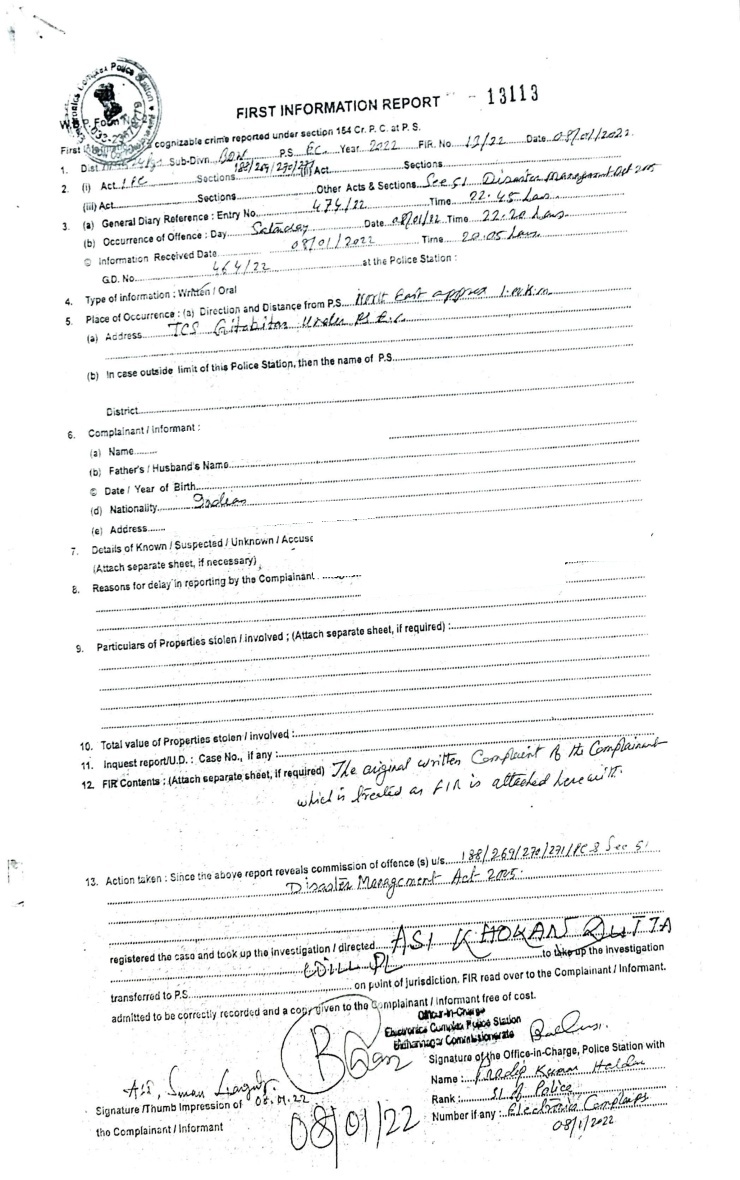 FIRST INFORMATION REPORT 13113
W.B.P. Form No
First cognizable crime reported under section 154 Cr. P. C. at P. S.
1. Dist Sub-Divn. P.S. EC. Year 2022 FIR. No. 12/22 Date 08/01/2022
2. (i) Act IPC Sections 188/269/270/271 (ii) Act Sections
(iii) Act Sections Other Acts & Sections Sec 51 Disaster Management Act 2005
3. (a) General Diary Reference : Entry No. 474/22 Time 22.45 hrs
(b) Occurrence of Offence : Day Saturday Date 08/01/22 Time 22.20 hrs
© Information Received Date 08/01/2022 Time 20.05 hrs
G.D. No. 464/22 at the Police Station :
4. Type of information : Written / Oral
5. Place of Occurrence : (a) Direction and Distance from P.S. North East approx
(a) Address TCS Gitabitan Under PS E.C.
(b) In case outside limit of this Police Station, then the name of P.S.
District
6. Complainant / informant :
(a) Name
(b) Father's / Husband's Name
© Date / Year of Birth
(d) Nationality Indian
(e) Address
7. Details of Known / Suspected / Unknown / Accuse
(Attach separate sheet, if necessary)
8. Reasons for delay in reporting by the Complainant
9. Particulars of Properties stolen / involved ; (Attach separate sheet, if required) :
10. Total value of Properties stolen / involved :
11. Inquest report/U.D. : Case No., if any :
12. FIR Contents : (Attach separate sheet, if required) The original written Complaint of the Complainant
which is treated as FIR is attached herewith.
13. Action taken : Since the above report reveals commission of offence (s) u/s. 188/269/270/271 IPC & Sec 51
Disaster Management Act 2005.
registered the case and took up the investigation / directed ASI KHOKAN DUTTA
WILL to take up the investigation
transferred to P.S. on point of jurisdiction. FIR read over to the Complainant / Informant.
admitted to be correctly recorded and a copy given to the Complainant / informant free of cost.
Officer-in-Charge
Electronics Complex Police Station
Bidhannagar Commissionerate
Signature of the Office-in-Charge, Police Station with
Name : Pradip Kumar Halder
Rank : SI of Police
Number if any : Electronic Complex
08/1/2022
ASI, Suman
08.01.22
Signature /Thumb Impression of
the Complainant / Informant
08/01/22